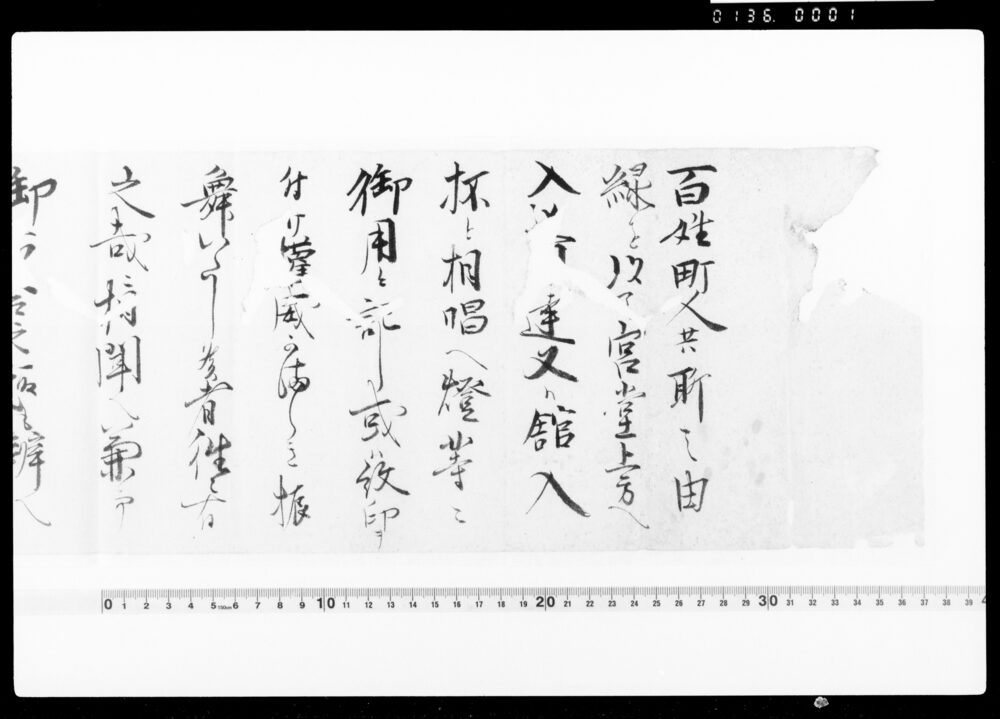 0136. 0001
百姓町人共聊之由
緑を以て宮堂上方へ
入 達又ハ館入
抔と相唱へ燈等ニ
御用と記し或ハ絵印
付ケ 権威ヶ満しき振
舞いたし候者往々有
之哉ニ相聞へ兼而
御 弁へ
0 1 2 3 4 5 6 7 8 9 10 11 12 13 14 15 16 17 18 19 20 21 22 23 24 25 26 27 28 29 30 31 32 33 34 35 36 37 38 39 4